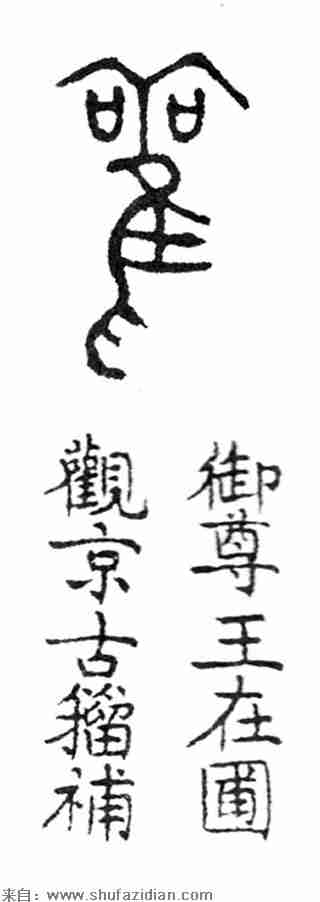 御尊王在圃
觀京古籀補
来自：www.shufazidian.com